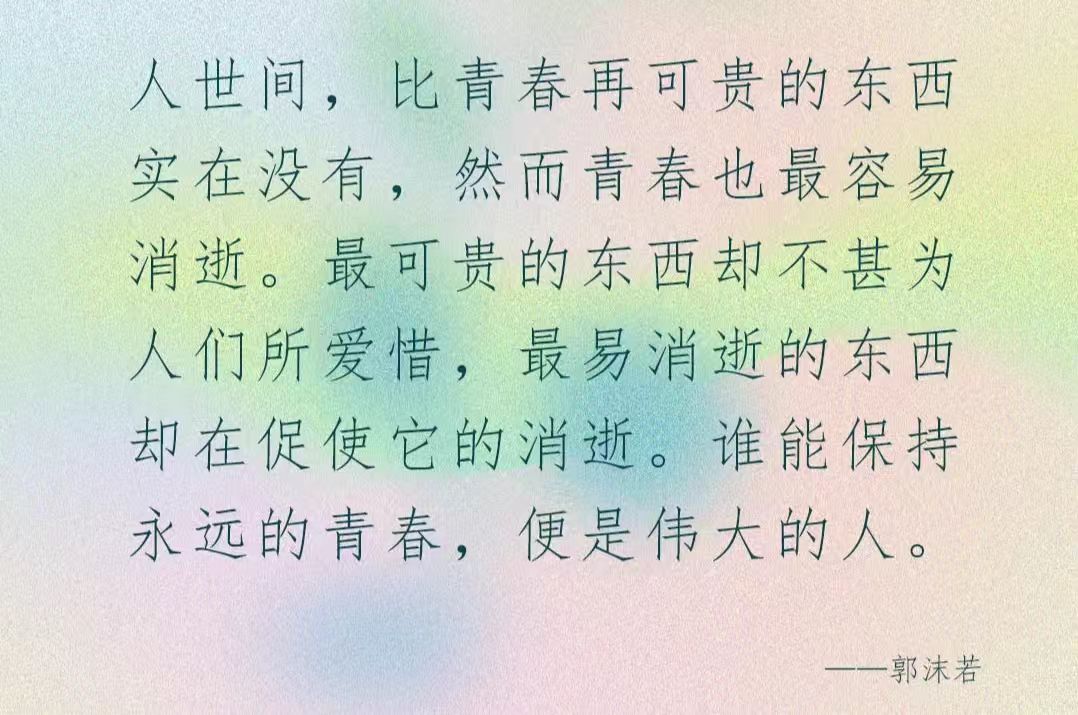 人世间，比青春再可贵的东西
实在没有，然而青春也最容易
消逝。最可贵的东西却不甚为
人们所爱惜，最易消逝的东西
却在促使它的消逝。谁能保持
永远的青春，便是伟大的人。
——郭沫若